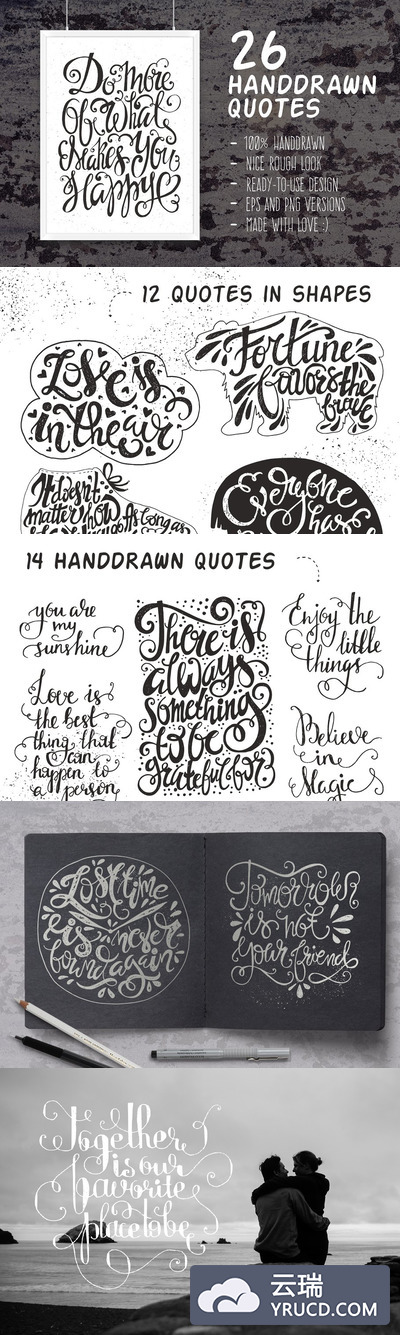 Do more
Of What
Makes You
Happy
26
HANDDRAWN
QUOTES
- 100% HANDDRAWN
- NICE ROUGH LOOK
- READY-TO-USE DESIGN
- EPS AND PNG VERSIONS
- MADE WITH LOVE :)
12 QUOTES IN SHAPES
Love is
in the air
Fortune
favors the
brave
It doesn't
matter how
As long as
Everyone
has
14 HANDDRAWN QUOTES
you are
my
sunshine
There is
always
something
to be
grateful for
Enjoy the
little
things
Love is
the best
thing that
can
happen to
a person
Believe
in
Magic
Lost time
is never
found again
Tomorrow
is not
your friend
Together
is our
favorite
place to be
云瑞
YRUCD.COM